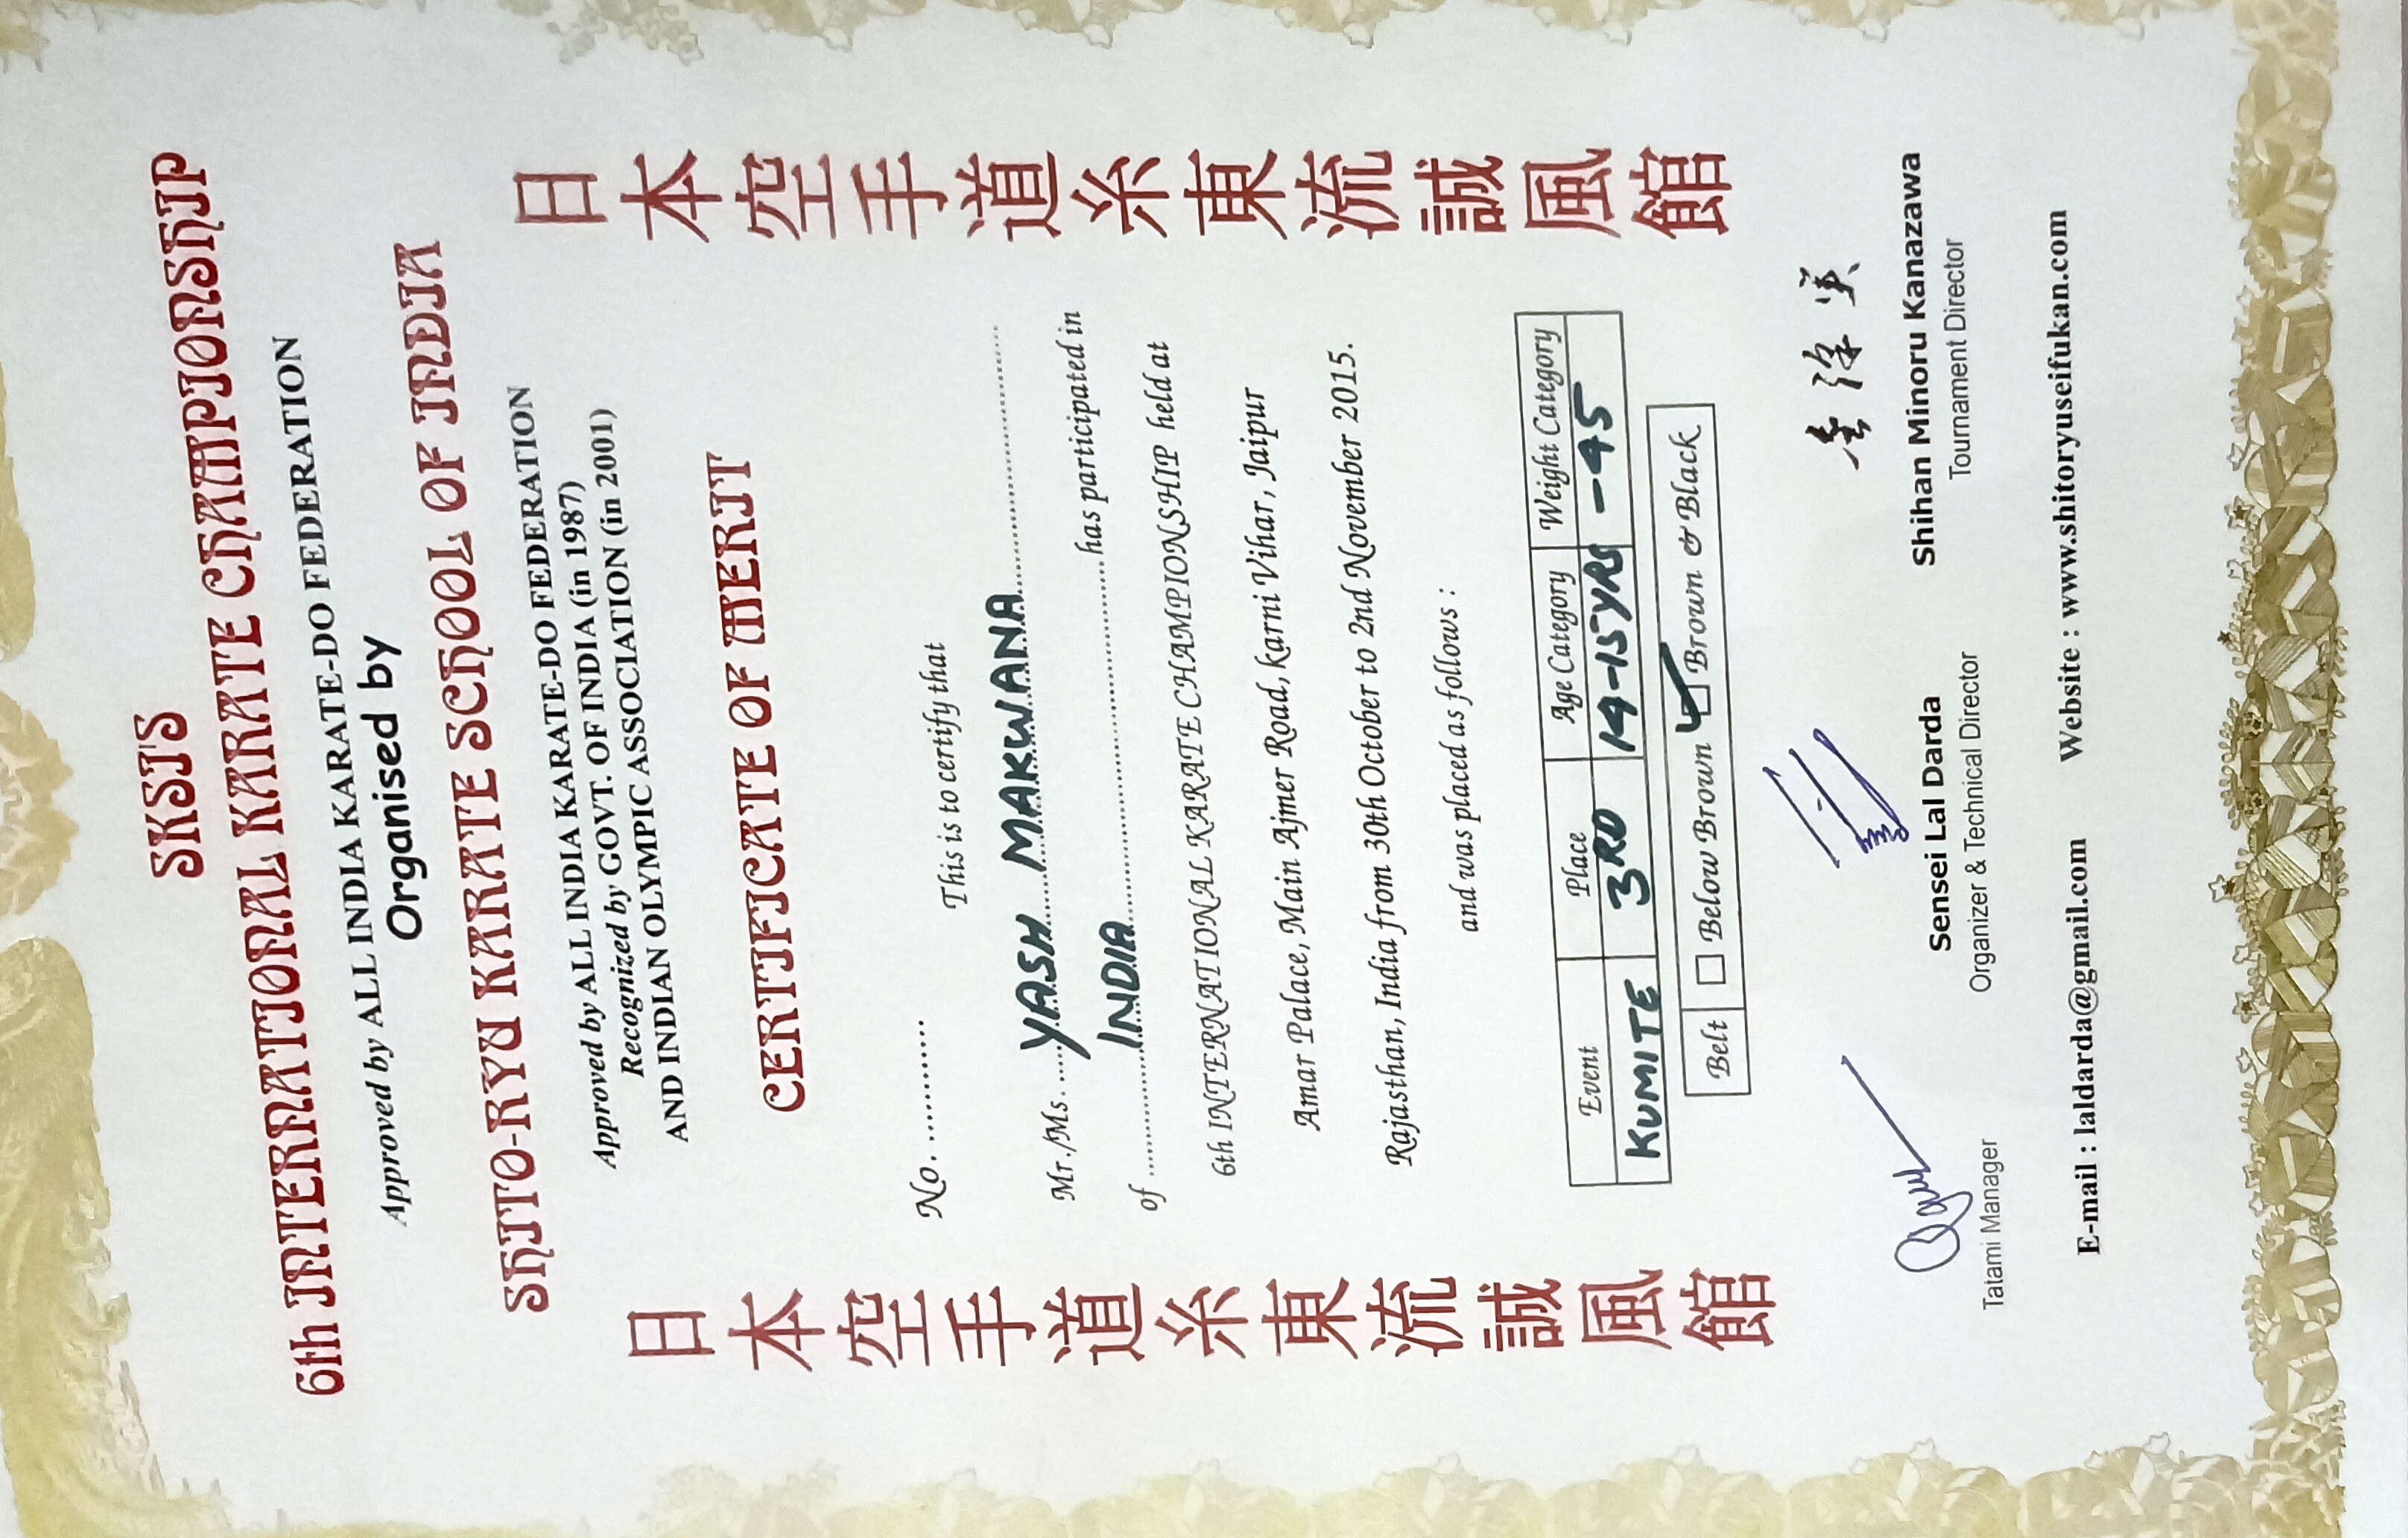 SKSI'S
6th INTERNATIONAL KARATE CHAMPIONSHIP
Approved by ALL INDIA KARATE-DO FEDERATION
Organised by
SHITO-RYU KARATE SCHOOL OF INDIA
Approved by ALL INDIA KARATE-DO FEDERATION
Recognized by GOVT. OF INDIA (in 1987)
AND INDIAN OLYMPIC ASSOCIATION (in 2001)
日本空手道糸東流誠風館
日本空手道糸東流誠風館
CERTIFICATE OF MERIT
No. ............
This is to certify that
Mr./Ms. YASH MAKWANA
of INDIA has participated in
6th INTERNATIONAL KARATE CHAMPIONSHIP held at
Amar Palace, Main Ajmer Road, karni Vihar, Jaipur
Rajasthan, India from 30th October to 2nd November 2015.
and was placed as follows :
Event Place Age Category Weight Category
KUMITE 3RD 14-15YRS -45
Belt Below Brown Brown & Black
Tatami Manager
Sensei Lal Darda
Organizer & Technical Director
Shihan Minoru Kanazawa
Tournament Director
E-mail : laldarda@gmail.com Website : www.shitoryuseifukan.com